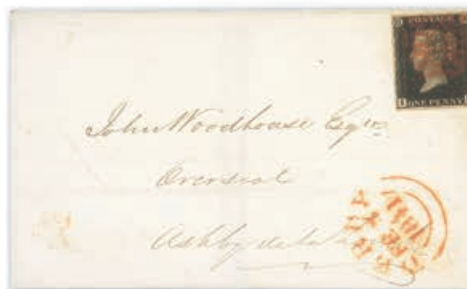 POSTAGE
ONE PENNY
John Woodhouse Esqre
Overseal
Ashby de la